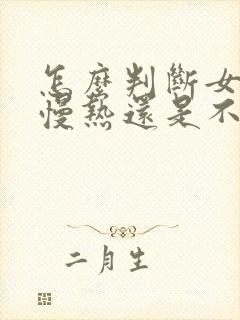 怎麼判斷女
慢熱還是不
二月生